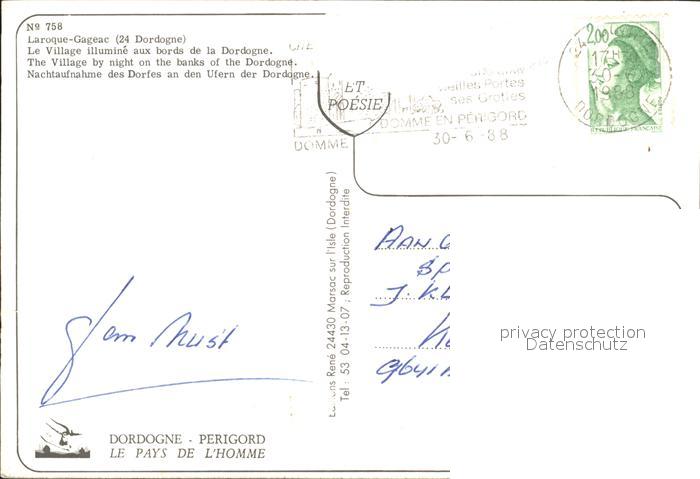 Nº 758
Laroque-Gageac (24 Dordogne)
Le Village illuminé aux bords de la Dordogne.
The Village by night on the banks of the Dordogne.
Nachtaufnahme des Dorfes an den Ufern der Dordogne.
ET
POÉSIE
vieilles Portes
ses Grottes
DOMME EN PÉRIGORD
DOMME
30- 6 -88
2,00
17H
1988
DORDOGNE
REPUBLIQUE FRANÇAISE
Editions René 24430 Marsac sur l'Isle (Dordogne)
Tel : 53 04-13-07 ; Reproduction Interdite
AAN
J. KL
privacy protection
Datenschutz
DORDOGNE - PERIGORD
LE PAYS DE L'HOMME